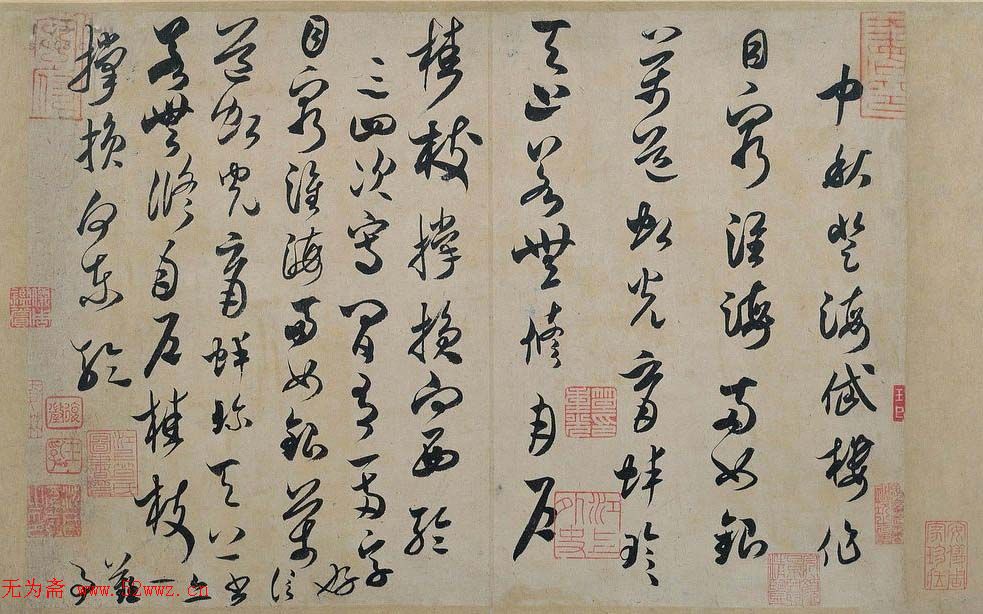 中秋登海岱樓作
目窮淮海兩如銀
萬道虹光育蚌珍
天上若無修月戶
桂枝撐損向西輪
三四次寫間有一兩字
好信書亦一難事
目窮淮海兩如銀萬
道虹光育蚌珍天上
若無修月戶桂枝
撐損向東輪
江上外史
安儀周家珍藏
无为斋 www.52wwz.cn